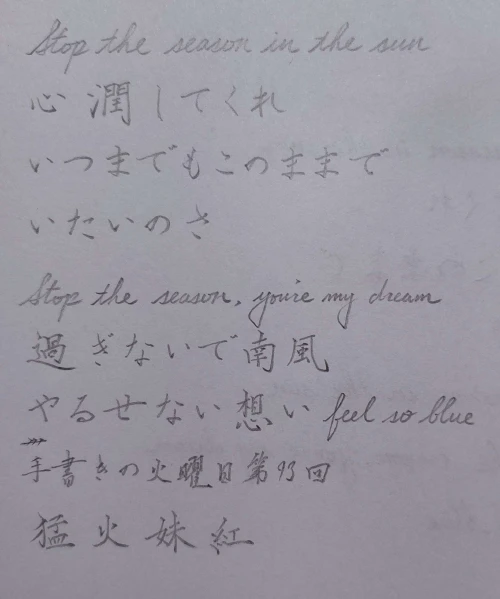 Stop the season in the sun
心潤してくれ
いつまでもこのままで
いたいのさ
Stop the season, you're my dream
過ぎないで南風
やるせない想い feel so blue
手書きの火曜日第93回
猛火妹紅